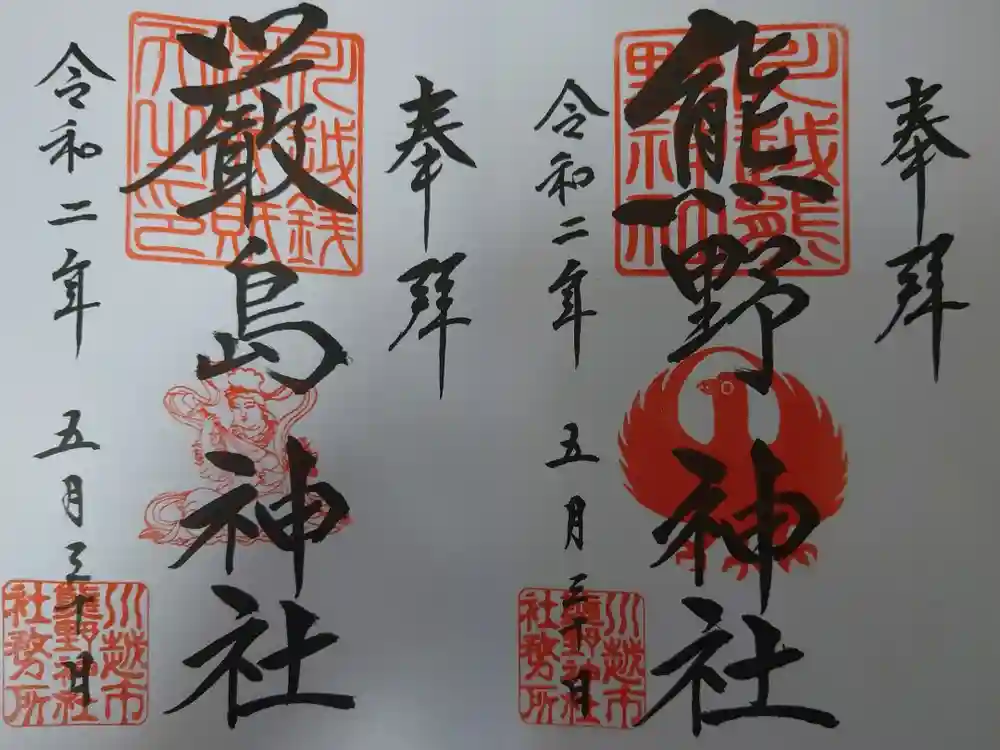 奉拝
川越熊
野神社
熊野神社
令和二年 五月三十日
川越市
熊野神社
社務所
奉拝
川越銭
洗弁財
天之印
厳島神社
令和二年 五月三十日
川越市
熊野神社
社務所